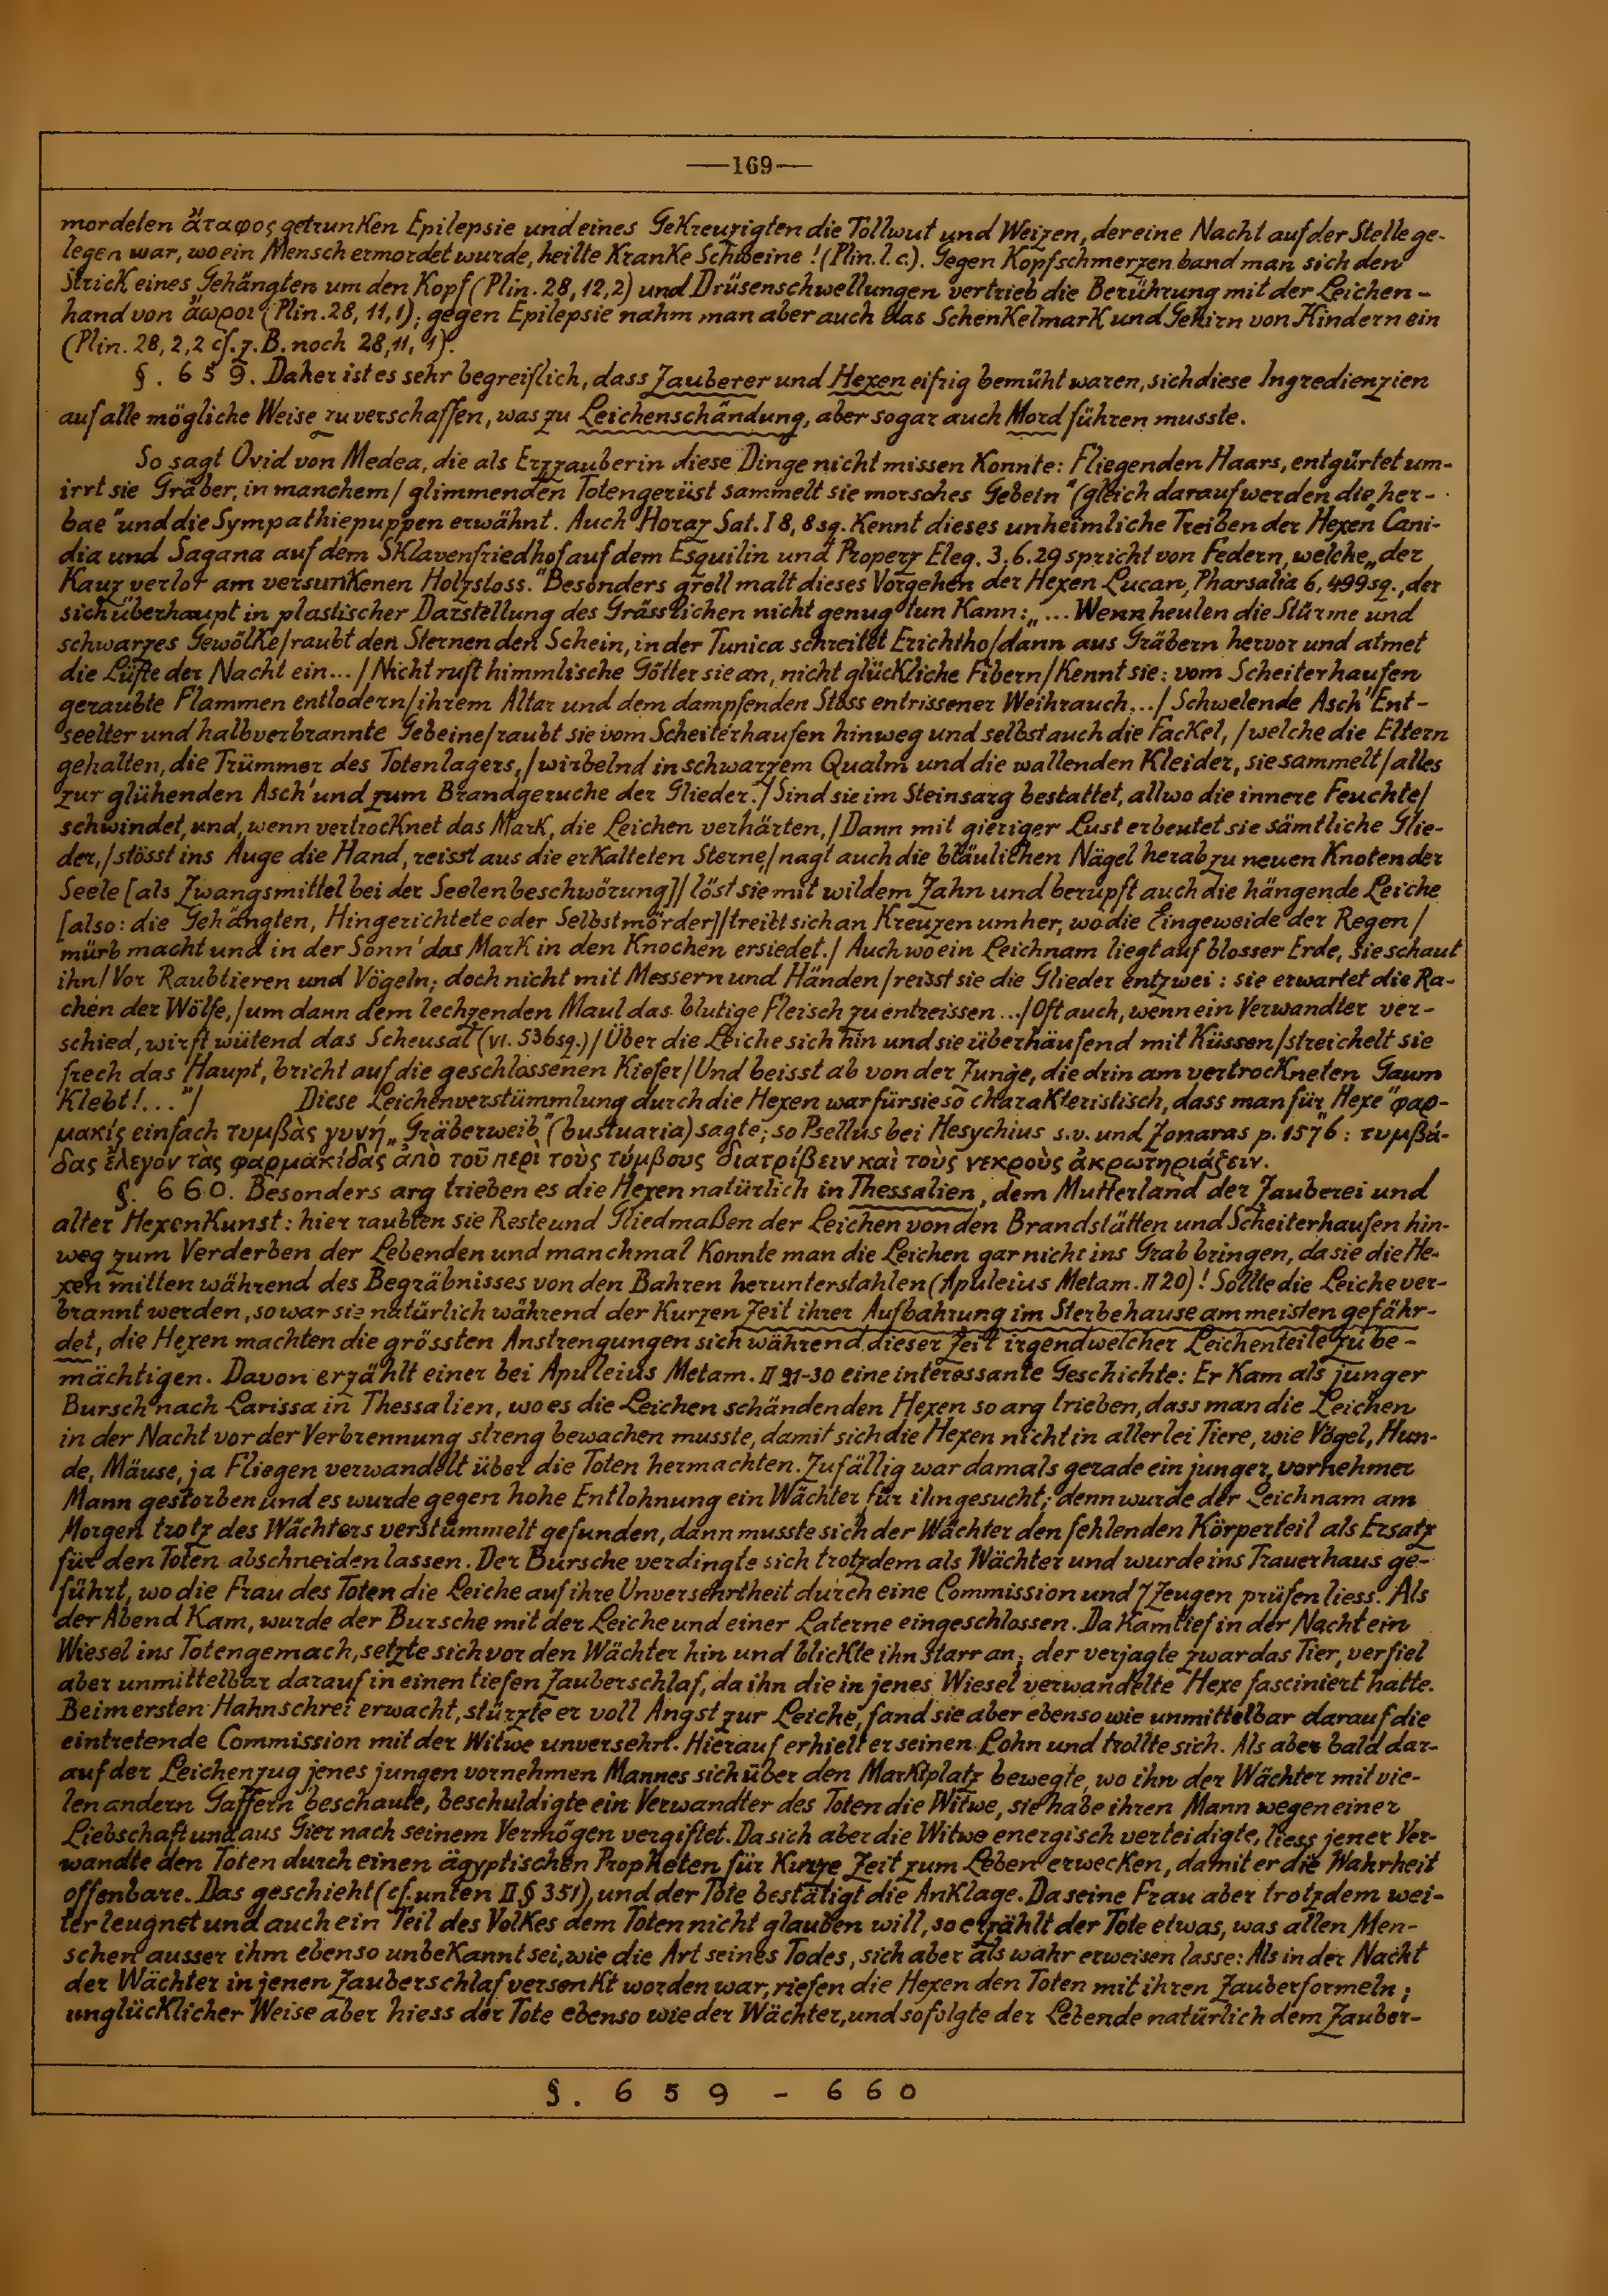 —169—
mordeten ἄταφος getrunken Epilepsie und eines Gekreuzigten die Tollwut und Weizen, der eine Nacht auf der Stelle ge-
legen war, wo ein Mensch ermordet wurde, heilte kranke Schweine! (Plin. l. c.). Gegen Kopfschmerzen band man sich den
Strick eines Gehängten um den Kopf (Plin. 28, 12, 2) und Drüsenschwellungen vertrieb die Berührung mit der Leichen-
hand von ἄωροι (Plin. 28, 11, 1); gegen Epilepsie nahm man aber auch das Schenkelmark und Gehirn von Kindern ein
(Plin. 28, 2, 2 cf. z. B. noch 28, 11, 1).
§. 659. Daher ist es sehr begreiflich, dass Zauberer und Hexen eifrig bemüht waren, sich diese Ingredienzien
auf alle mögliche Weise zu verschaffen, was zu Leichenschändung, aber sogar auch Mord führen musste.
So sagt Ovid von Medea, die als Erzzauberin diese Dinge nicht missen konnte: Fliegenden Haars, entgürtet um-
irrt sie Gräber, in manchem / glimmenden Totengerüst sammelt sie morsches Gebein" (gleich darauf werden die „her-
bae" und die Sympathiepuppen erwähnt. Auch Horaz Sat. I 8, 8 sq. kennt dieses unheimliche Treiben der Hexen Cani-
dia und Sagana auf dem Sklavenfriedhof auf dem Esquilin und Properz Eleg. 3. 6. 29 spricht von Federn, welche „der
Kauz verlor am versunkenen Holzstoss." Besonders grell malt dieses Vorgehen der Hexen Lucan, Pharsalia 6, 499 sq., der
sich überhaupt in plastischer Darstellung des Grässlichen nicht genug tun kann: „... Wenn heulen die Stürme und
schwarzes Gewölke / raubt den Sternen den Schein, in der Tunica schreitet Erichtho / dann aus Gräbern hervor und atmet
die Lüfte der Nacht ein... / Nicht ruft himmlische Götter sie an, nicht glückliche Fibern / kennt sie: vom Scheiterhaufen
geraubte Flammen entlodern / ihrem Altar und dem dampfenden Stoss entrissener Weihrauch... / Schwelende Asch' Ent-
seelter und halbverbrannte Gebeine / raubt sie vom Scheiterhaufen hinweg und selbst auch die Fackel, / welche die Eltern
gehalten, die Trümmer des Totenlagers, / wirbelnd in schwarzem Qualm und die wallenden Kleider, sie sammelt / alles
zur glühenden Asch' und zum Brandgeruche der Glieder. / Sind sie im Steinsarg bestattet, allwo die innere Feuchte /
schwindet, und, wenn vertrocknet das Mark, die Leichen verhärten, / Dann mit gieriger Lust erbeutet sie sämtliche Glie-
der, / stösst ins Auge die Hand, reisst aus die erkalteten Sterne, / nagt auch die bläulichen Nägel herab zu neuen Knoten der
Seele [als Zwangsmittel bei der Seelenbeschwörung] / löst sie mit wildem Zahn und berupft auch die hängende Leiche
[also: die Gehängten, Hingerichtete oder Selbstmörder] / treibt sich an Kreuzen umher, wo die Eingeweide der Regen /
mürb macht und in der Sonn' das Mark in den Knochen ersiedet. / Auch wo ein Leichnam liegt auf blosser Erde, sie schaut
ihn / Vor Raubtieren und Vögeln; doch nicht mit Messern und Händen / reisst sie die Glieder entzwei: sie erwartet die Ra-
chen der Wölfe, / um dann dem lechzenden Maul das blutige Fleisch zu entreissen... / Oft auch, wenn ein Verwandter ver-
schied, wirft wütend das Scheusal (vi. 536 sq.) / Über die Leiche sich hin und sie überhäufend mit Küssen / streichelt sie
frech das Haupt, bricht auf die geschlossenen Kiefer / Und beisst ab von der Zunge, die drin am vertrockneten Gaum
klebt!..." / Diese Leichenverstümmlung durch die Hexen war für sie so charakteristisch, dass man für „Hexe" φαρ-
μακίς einfach τυμβὰς γυνή „Gräberweib" (bustuaria) sagte; so Psellus bei Hesychius s. v. und Zonaras p. 1576: τυμβά-
δας ἔλεγον τὰς φαρμακίδας ἀπὸ τοῦ περὶ τοὺς τύμβους διατρίβειν καὶ τοὺς νεκροὺς ἀκρωτηριάζειν.
§. 660. Besonders arg trieben es die Hexen natürlich in Thessalien, dem Mutterland der Zauberei und
alter Hexenkunst: hier raubten sie Reste und Gliedmaßen der Leichen von den Brandstätten und Scheiterhaufen hin-
weg zum Verderben der Lebenden und manchmal konnte man die Leichen gar nicht ins Grab bringen, da sie die He-
xen mitten während des Begräbnisses von den Bahren herunterstahlen (Apuleius Metam. II 20)! Sollte die Leiche ver-
brannt werden, so war sie natürlich während der kurzen Zeit ihrer Aufbahrung im Sterbehause am meisten gefähr-
det, die Hexen machten die grössten Anstrengungen sich während dieser Zeit irgendwelcher Leichenteile zu be-
mächtigen. Davon erzählt einer bei Apuleius Metam. II 21-30 eine interessante Geschichte: Er kam als junger
Bursch nach Larissa in Thessalien, wo es die Leichen schändenden Hexen so arg trieben, dass man die Leichen
in der Nacht vor der Verbrennung streng bewachen musste, damit sich die Hexen nicht in allerlei Tiere, wie Vögel, Hun-
de, Mäuse, ja Fliegen verwandelt über die Toten hermachten. Zufällig war damals gerade ein junger, vornehmer
Mann gestorben und es wurde gegen hohe Entlohnung ein Wächter für ihn gesucht; denn wurde der Leichnam am
Morgen trotz des Wächters verstümmelt gefunden, dann musste sich der Wächter den fehlenden Körperteil als Ersatz
für den Toten abschneiden lassen. Der Bursche verdingte sich trotzdem als Wächter und wurde ins Trauerhaus ge-
führt, wo die Frau des Toten die Leiche auf ihre Unversehrtheit durch eine Commission und 7 Zeugen prüfen liess. Als
der Abend kam, wurde der Bursche mit der Leiche und einer Laterne eingeschlossen. Da kam tief in der Nacht ein
Wiesel ins Totengemach, setzte sich vor den Wächter hin und blickte ihn starr an; der verjagte zwar das Tier, verfiel
aber unmittelbar darauf in einen tiefen Zauberschlaf, da ihn die in jenes Wiesel verwandelte Hexe fasciniert hatte.
Beim ersten Hahnschrei erwacht, stürzte er voll Angst zur Leiche, fand sie aber ebenso wie unmittelbar darauf die
eintretende Commission mit der Witwe unversehrt. Hierauf erhielt er seinen Lohn und trollte sich. Als aber bald dar-
auf der Leichenzug jenes jungen vornehmen Mannes sich über den Marktplatz bewegte, wo ihn der Wächter mit vie-
len andern Gaffern beschaute, beschuldigte ein Verwandter des Toten die Witwe, sie habe ihren Mann wegen einer
Liebschaft und aus Gier nach seinem Vermögen vergiftet. Da sich aber die Witwe energisch verteidigte, liess jener Ver-
wandte den Toten durch einen ägyptischen Propheten für kurze Zeit zum Leben erwecken, damit er die Wahrheit
offenbare. Das geschieht (cf. unten II § 351), und der Tote bestätigt die Anklage. Da seine Frau aber trotzdem wei-
ter leugnet und auch ein Teil des Volkes dem Toten nicht glauben will, so erzählt der Tote etwas, was allen Men-
schen ausser ihm ebenso unbekannt sei, wie die Art seines Todes, sich aber als wahr erweisen lasse: Als in der Nacht
der Wächter in jenen Zauberschlaf versenkt worden war, riefen die Hexen den Toten mit ihren Zauberformeln;
unglücklicher Weise aber hiess der Tote ebenso wie der Wächter, und so folgte der Lebende natürlich dem Zauber-
§. 659 - 660